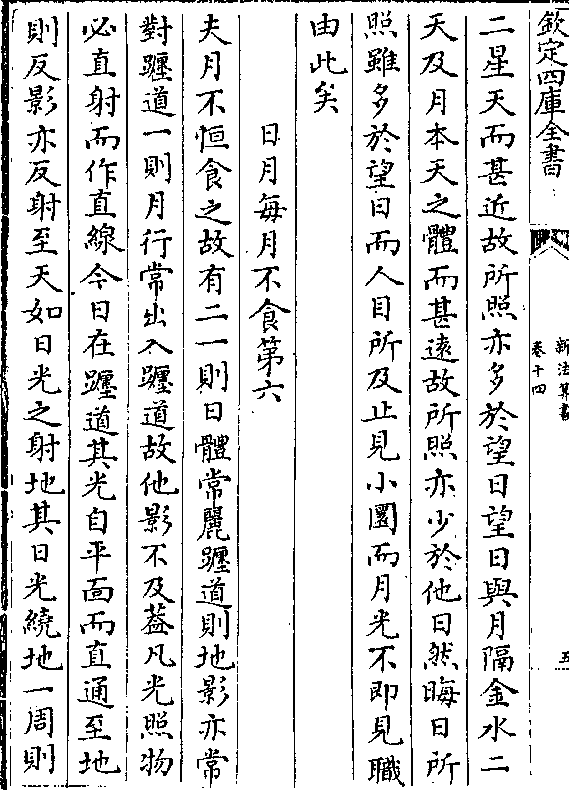 欽定四庫全書
新法算書
卷十四
五
二星天而甚近故所照亦多於望日望日與月隔金水二
天及月本天之體而甚遠故所照亦少於他日然晦日所
照雖多於望日而人目所及止見小圜而月光不即見職
由此矣
日月每月不食第六
夫月不恒食之故有二一則日體常麗躔道則地影亦常
對躔道一則月行常出入躔道故他影不及葢凡光照物
必直射而作直線今日在躔道其光自平面而直通至地
則反影亦反射至天如日光之射地其日光繞地一周則